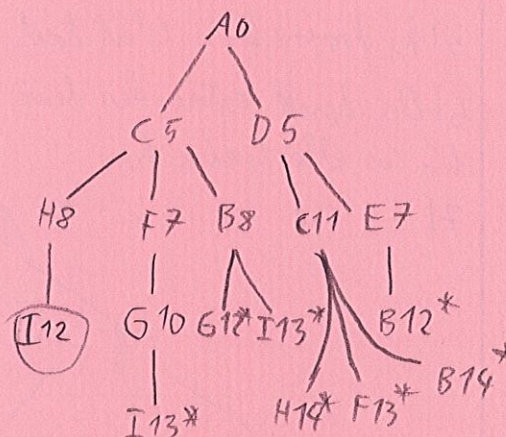 A0
C5 D5
H8 F7 B8 C11 E7
I12 G10 G12* I13* B12*
I13* H14* F13* B14*